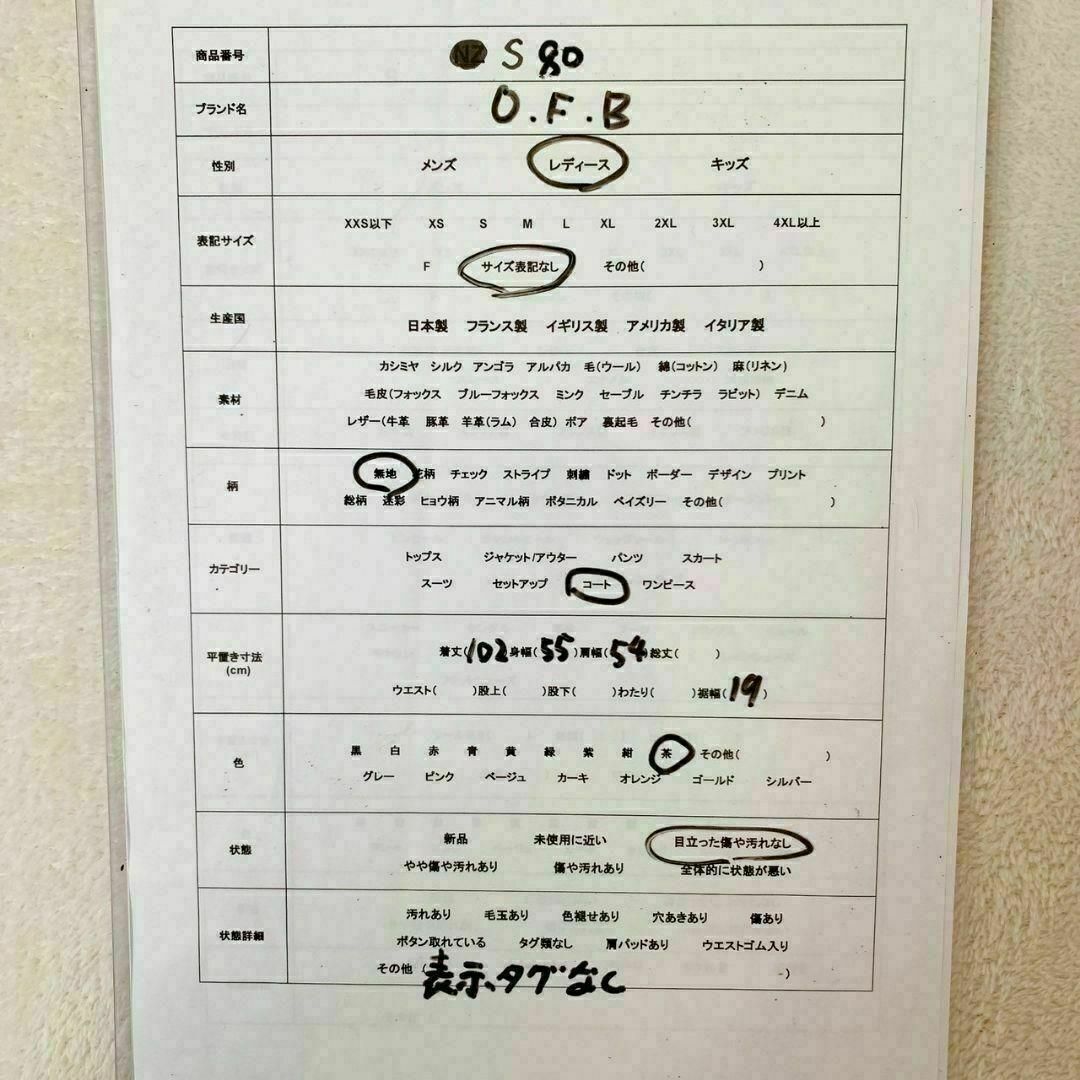 商品番号 NZ S 80
ブランド名 O.F.B
性別 メンズ レディース キッズ
表記サイズ
XXS以下 XS S M L XL 2XL 3XL 4XL以上
F サイズ表記なし その他( )
生産国 日本製 フランス製 イギリス製 アメリカ製 イタリア製
素材
カシミヤ シルク アンゴラ アルパカ 毛(ウール) 綿(コットン) 麻(リネン)
毛皮(フォックス ブルーフォックス ミンク セーブル チンチラ ラビット) デニム
レザー(牛革 豚革 羊革(ラム) 合皮) ボア 裏起毛 その他( )
柄
無地 花柄 チェック ストライプ 刺繍 ドット ボーダー デザイン プリント
総柄 迷彩 ヒョウ柄 アニマル柄 ボタニカル ペイズリー その他( )
カテゴリー
トップス ジャケット/アウター パンツ スカート
スーツ セットアップ コート ワンピース
平置き寸法
(cm)
着丈(102 身幅(55)肩幅(54 総丈( )
ウエスト( )股上( )股下( )わたり( )裾幅(19)
色
黒 白 赤 青 黄 緑 紫 紺 茶 その他( )
グレー ピンク ベージュ カーキ オレンジ ゴールド シルバー
状態
新品 未使用に近い 目立った傷や汚れなし
やや傷や汚れあり 傷や汚れあり 全体的に状態が悪い
状態詳細
汚れあり 毛玉あり 色褪せあり 穴あきあり 傷あり
ボタン取れている タグ類なし 肩パッドあり ウエストゴム入り
その他 (表示タグなし )